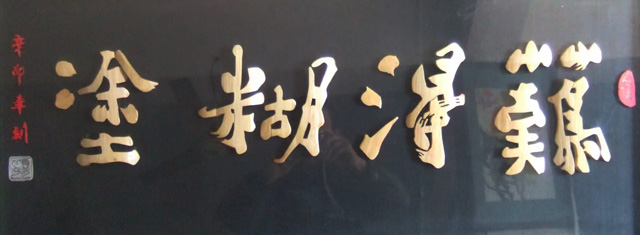 難得糊塗
辛卯年